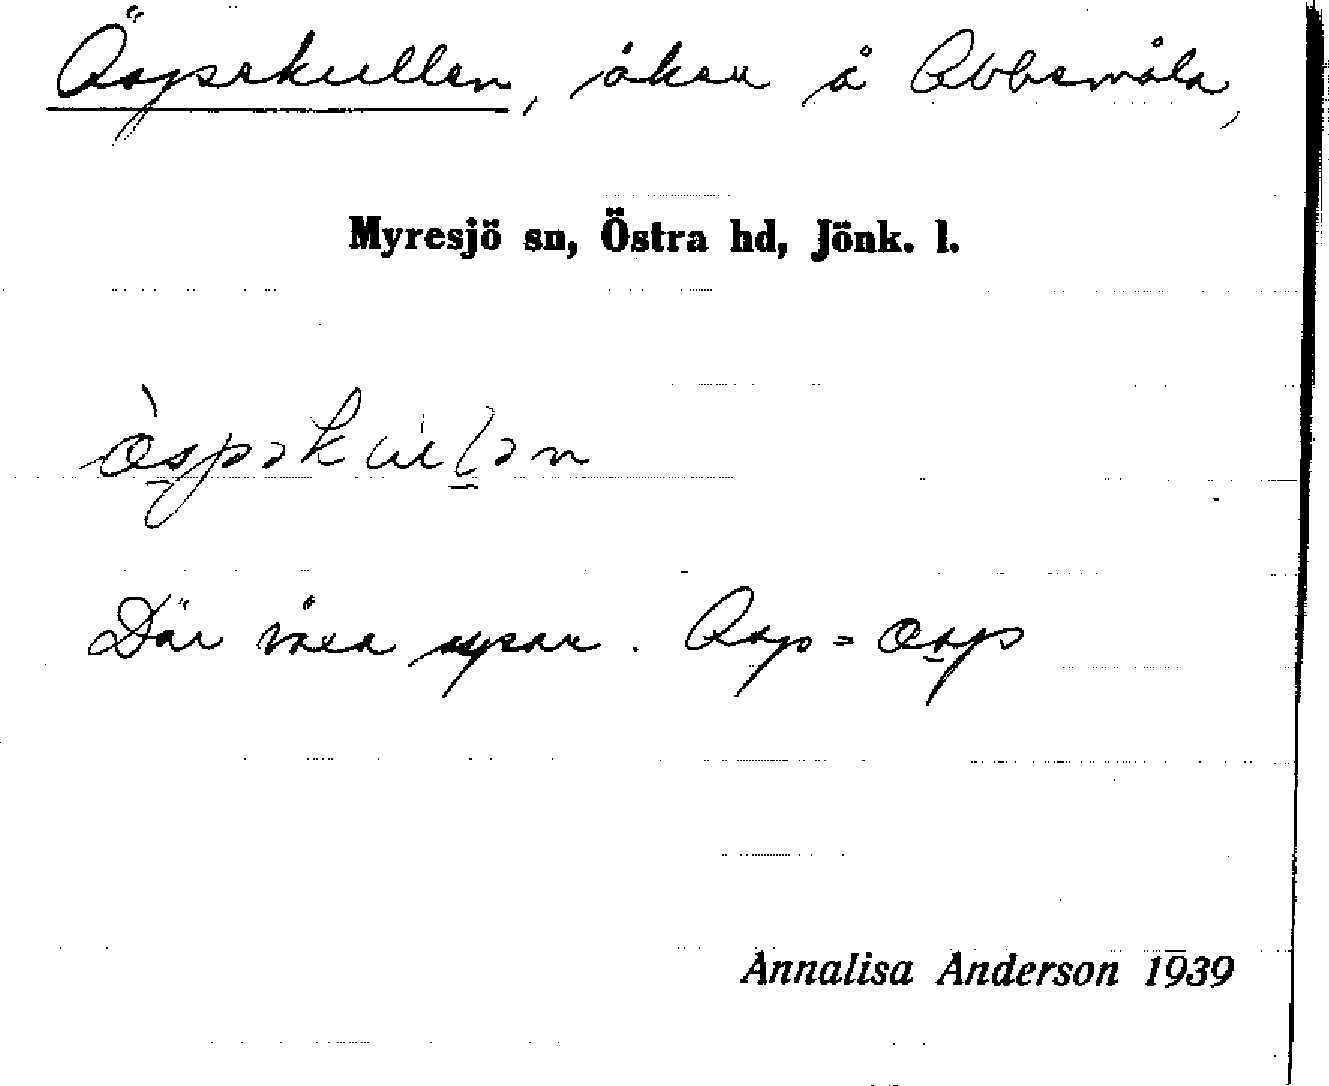 Äspekullen, åker å Abbemåla,
Myresjö sn, Östra hd, Jönk. l.
Där växa aspar. Asp = asp
Annalisa Anderson 1939